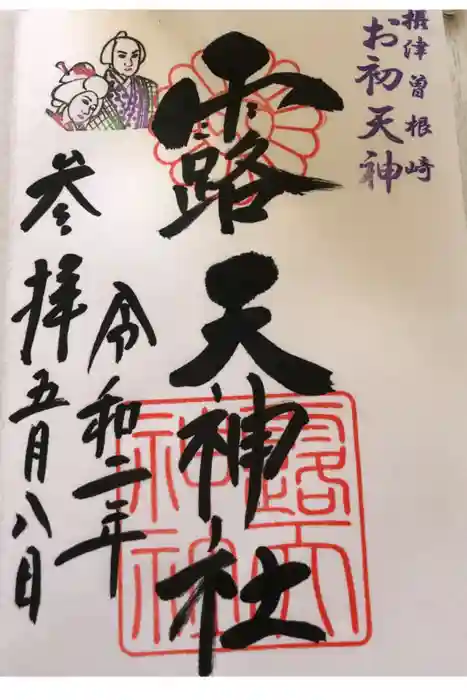 摂津曽根崎
お初天神
露天神社
令和二年
参拝五月八日
露天神社